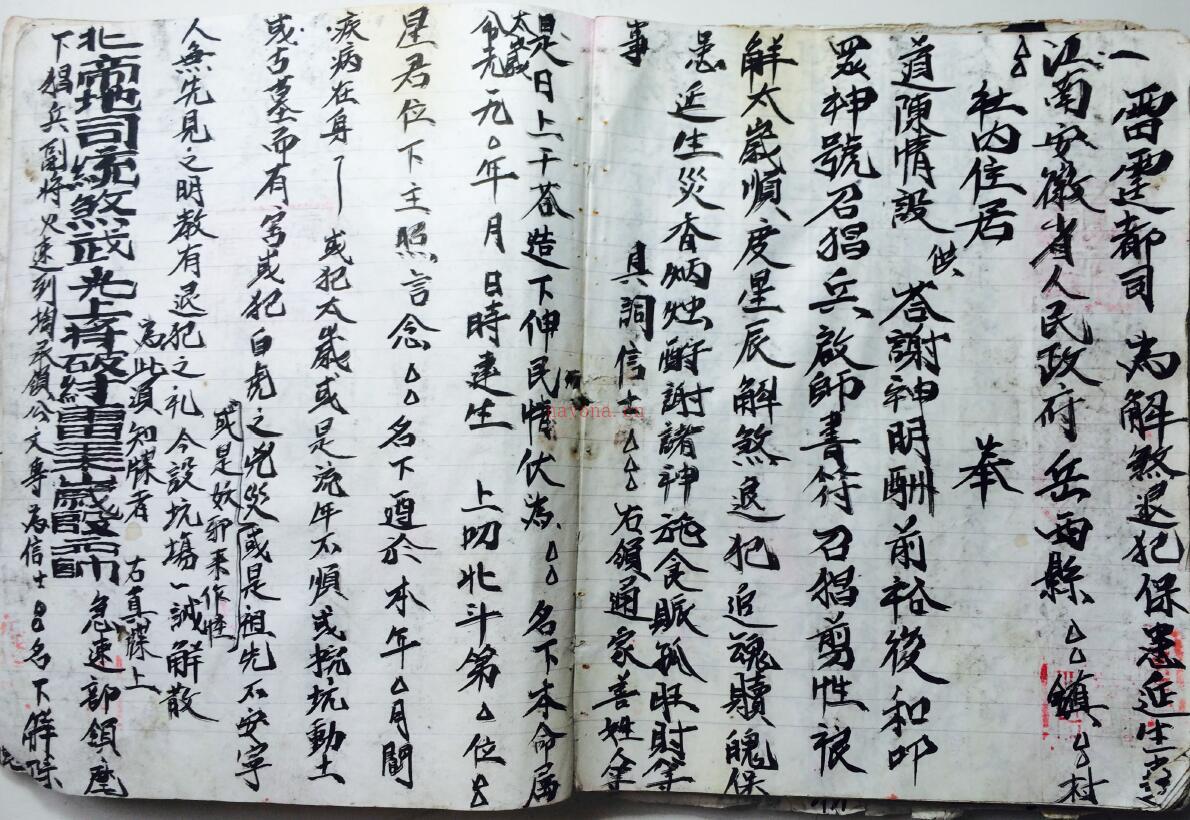 一雷霆都司 為解煞退犯保患延生
江南安徽省人民政府岳西縣△△鎮△△村
△△社內住居 奉
道陳情設供 答謝神明酬前裕後和叩
眾神號召猖兵啟師書符召猖剪性
解太歲順度星辰解煞退犯追魂贖魄保
患延生災香炳烛酧謝諸神施食賑孤財等
事 具詞信士△△△右領通家善姓人等
是日上干蒼造下伸民情伏為△△名下本命屬
太歲 年 月 日時建生 上叨北斗第△位
星君位下主照言念△△名下遵於本年△月間
疾病在身 或犯太歲或是流年不順或挖坑動土
或古墓而有害或犯白虎之兇災或是祖先不安寧
或是妖邪來作怪
人無先見之明教有退犯之礼今設坑塲一誠解散
為此須知牒者 右真牒上
北帝地司統煞武光上將 太歲殷帥 急速部領麾
下猖兵副將火速到壇承領公文專為信士△△名下解除
nayona.cn